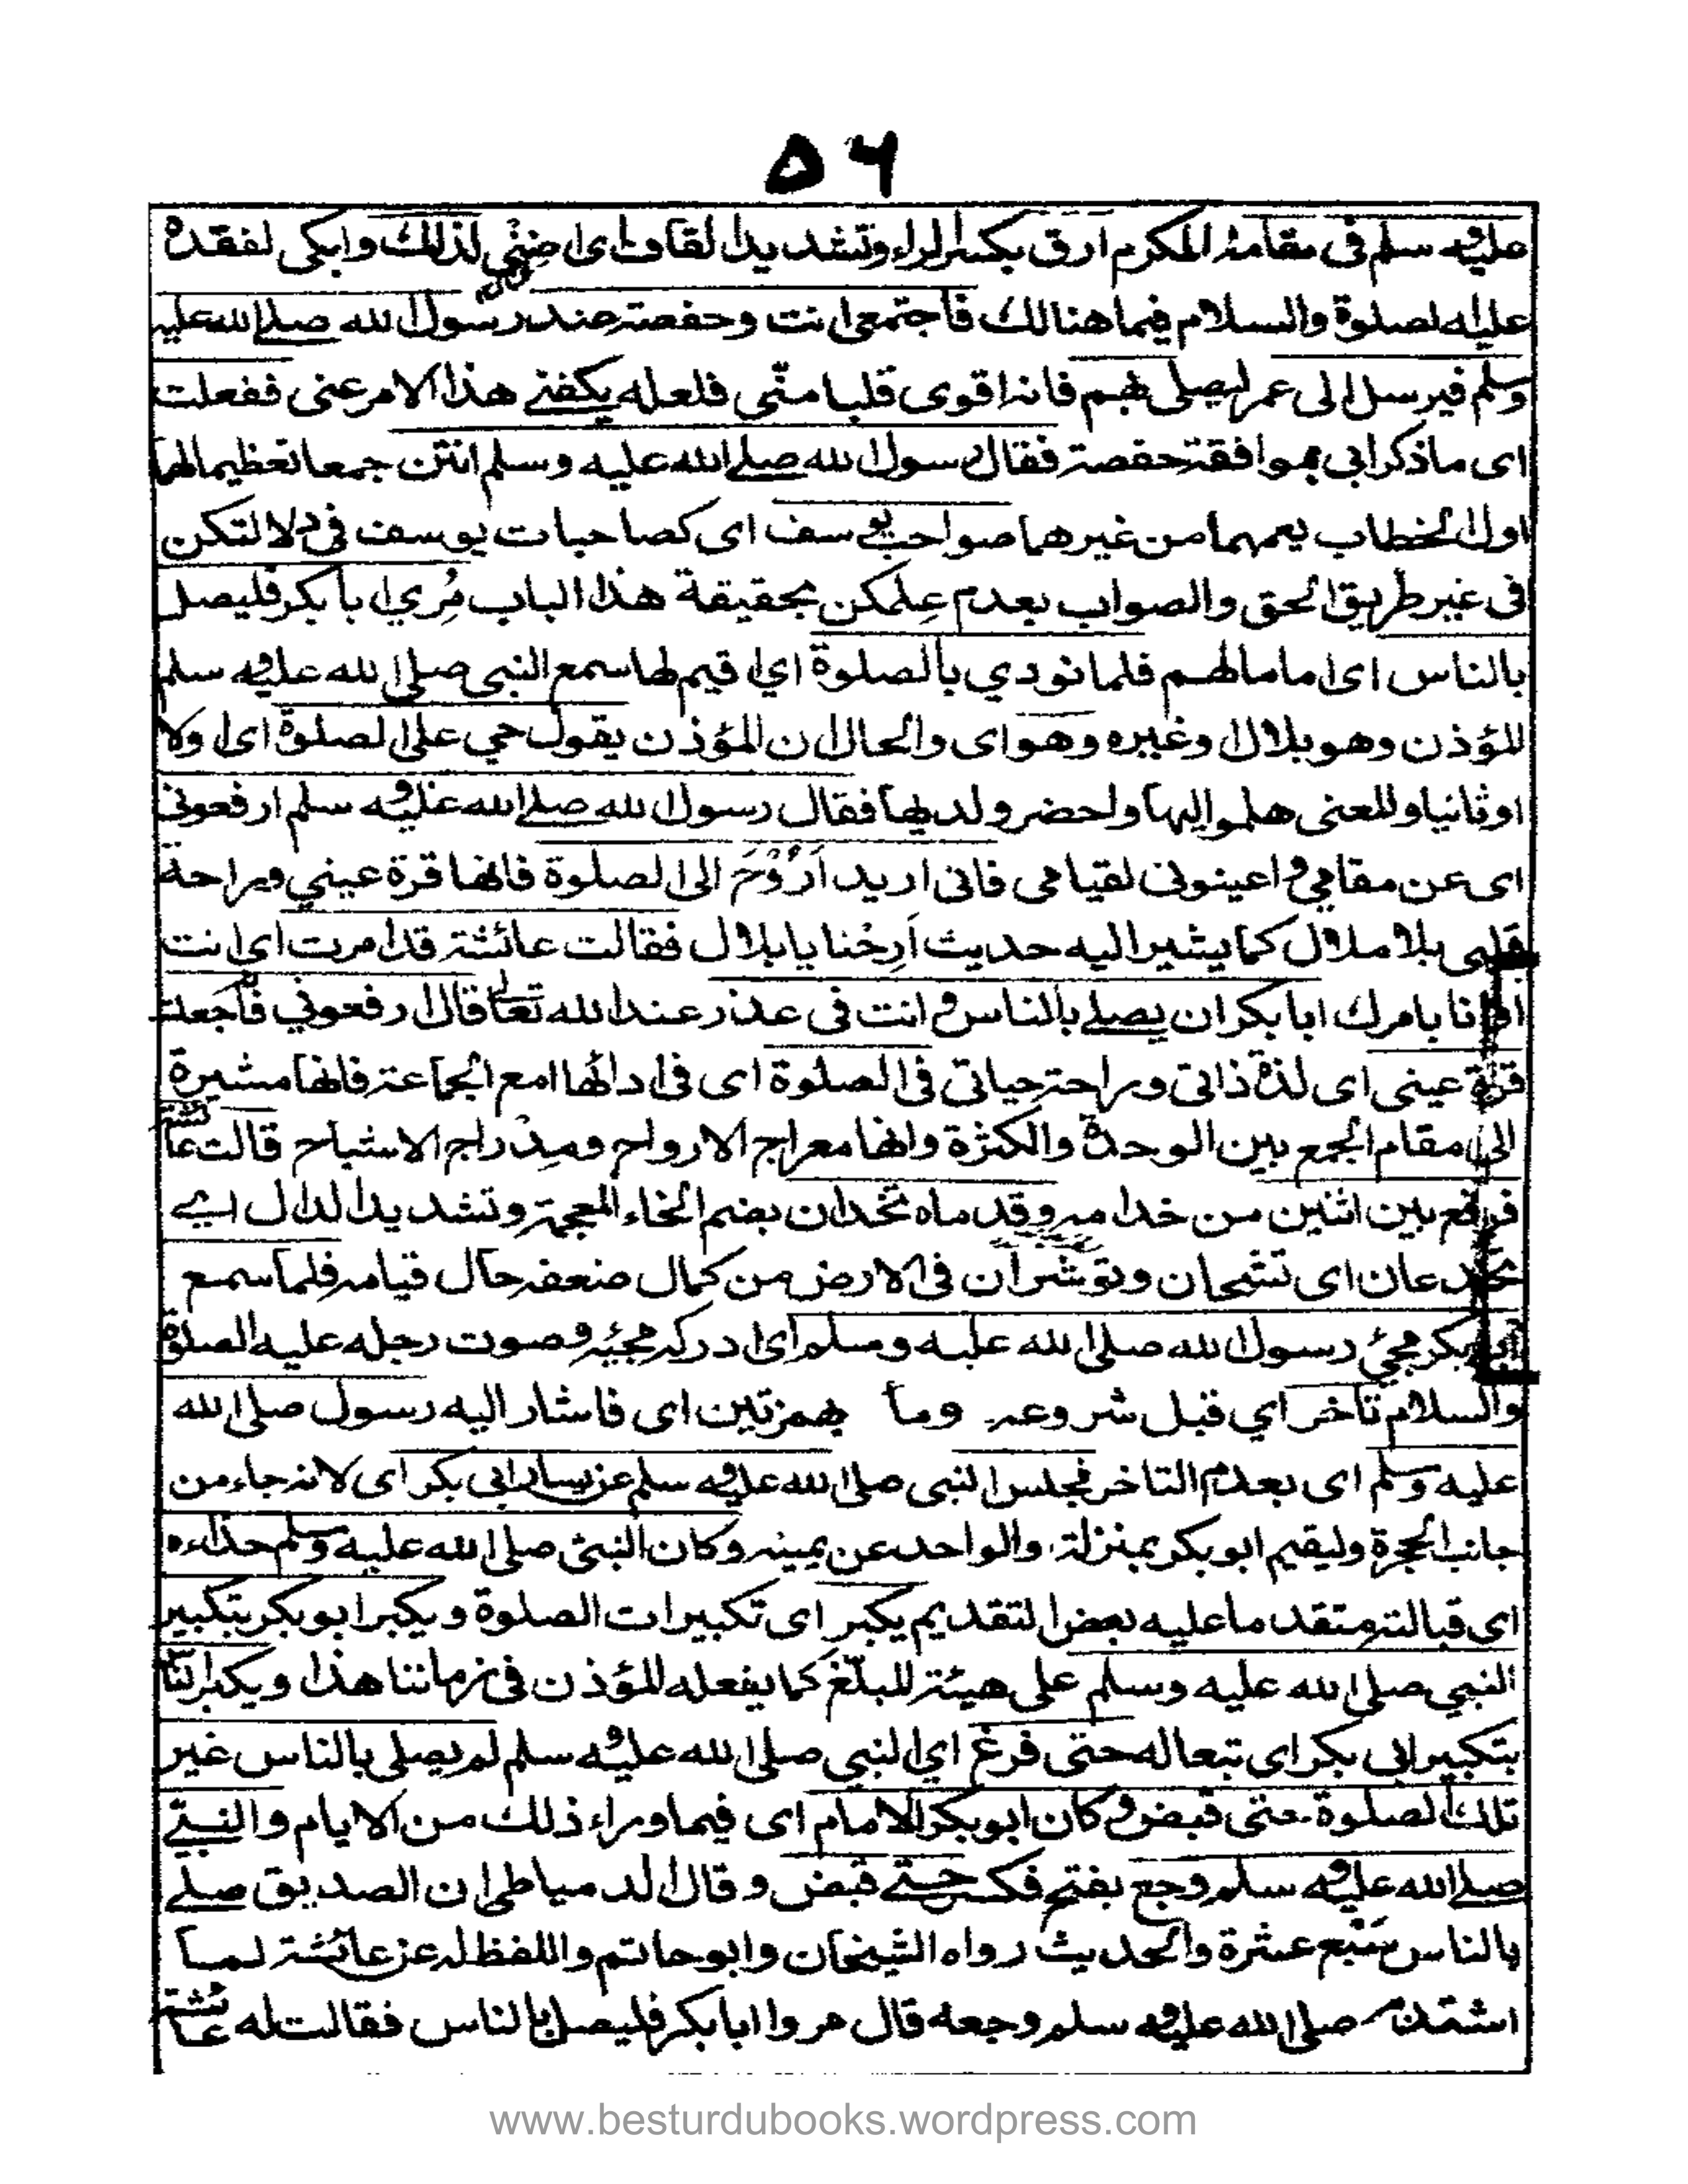 ٥٦
عليه وسلم فى مقامه المكرم ارق بكسر الراء وتشديد القاف اى اضنى لذلك وابكى لفقده
عليه الصلوة والسلام فيما هنالك فاجتمعى انت وحفصة عند رسول الله صلے الله عليه
وسلم فيرسل الى عمر ليصلى بهم فانه اقوى قلبا منّى فلعله يكفنے هذا الامر عنى ففعلت
اى ما ذكر ابى بموافقة حفصة فقال رسول الله صلے الله عليه وسلم انتن جمعا تعظيما لها
اول الخطاب يعمهما من غيرهما صواحب يوسف اى كصاحبات يوسف فى دلالتكن
فى غير طريق الحق والصواب بعدم علمكن بحقيقة هذا الباب مُري ابا بكر فليصل
بالناس اى اماما لهم فلما نودي بالصلوة اي اقيم لها سمع النبى صلى الله عليه وسلم
المؤذن وهو بلال وغيره وهو اى والحال ان المؤذن يقول حي على الصلوة اى اولا
او ثانيا والمعنى هلموا اليها واحضروا لديها فقال رسول الله صلے الله عليه وسلم ارفعونى
اى عن مقامي واعينونى لقيامى فانى اريد اَرُوْحَ الى الصلوة فانها قرة عيني وراحة
قلبى بلا ملال كما يشير اليه حديث اَرِحْنا يا بلال فقالت عائشة قد امرت اي انت
بامرك ابا بكر ان يصلے بالناس وانت فى عذر عند الله تعالى قال ارفعوني فاجعلت
قرة عينى اى لذة ذاتى وراحة حياتى فى الصلوة اى فى ادائها مع الجماعة فانها مشيرة
الى مقام الجمع بين الوحدة والكثرة وانها معراج الارواح ومِدْراج الاشباح قالت عائشة
فرفع بين اثنين من خدامه وقدماه تخدان بضم الخاء المعجمة وتشديد الدال اے
اى تشحان وتوشران فى الارض من كمال ضعفه حال قيامه فلما سمع
ابو بكر مجيئ رسول الله صلى الله عليه وسلم اى ادرك مجيئه وصوت رجله عليه الصلوة
والسلام تأخر اي قبل شروعه وما بهمزتين اى فاشار اليه رسول صلى الله
عليه وسلم اى بعدم التاخر فجلس النبى صلى الله عليه وسلم عن يسار ابى بكر اى لانه جاء من
جانب الحجرة وليقيم ابو بكر بمنزلة الواحد عن يمينه وكان النبى صلى الله عليه وسلم حذاءه
اى قبالته متقدما عليه بعض التقديم يكبر اى تكبيرات الصلوة ويكبر ابو بكر بتكبير
النبي صلى الله عليه وسلم على هيئة المبلّغ كما يفعله المؤذن فى زماننا هذا ويكبر الناس
بتكبير ابى بكر اى تبعا له حتى فرغ اي النبي صلى الله عليه وسلم لم يصلى بالناس غير
تلك الصلوة حتى قبض وكان ابو بكر الامام اى فيما وراء ذلك من الايام والنبے
صلے الله عليه وسلم وجع بفتح فكسر حتے قبض وقال الدمياطى ان الصديق صلے
بالناس سَبْع عشرة والحديث رواه الشيخان وابو حاتم واللفظ له عن عائشة لما
اشتد به صلى الله عليه وسلم وجعه قال مروا ابا بكر فليصل بالناس فقالت له عائشة
www.besturdubooks.wordpress.com